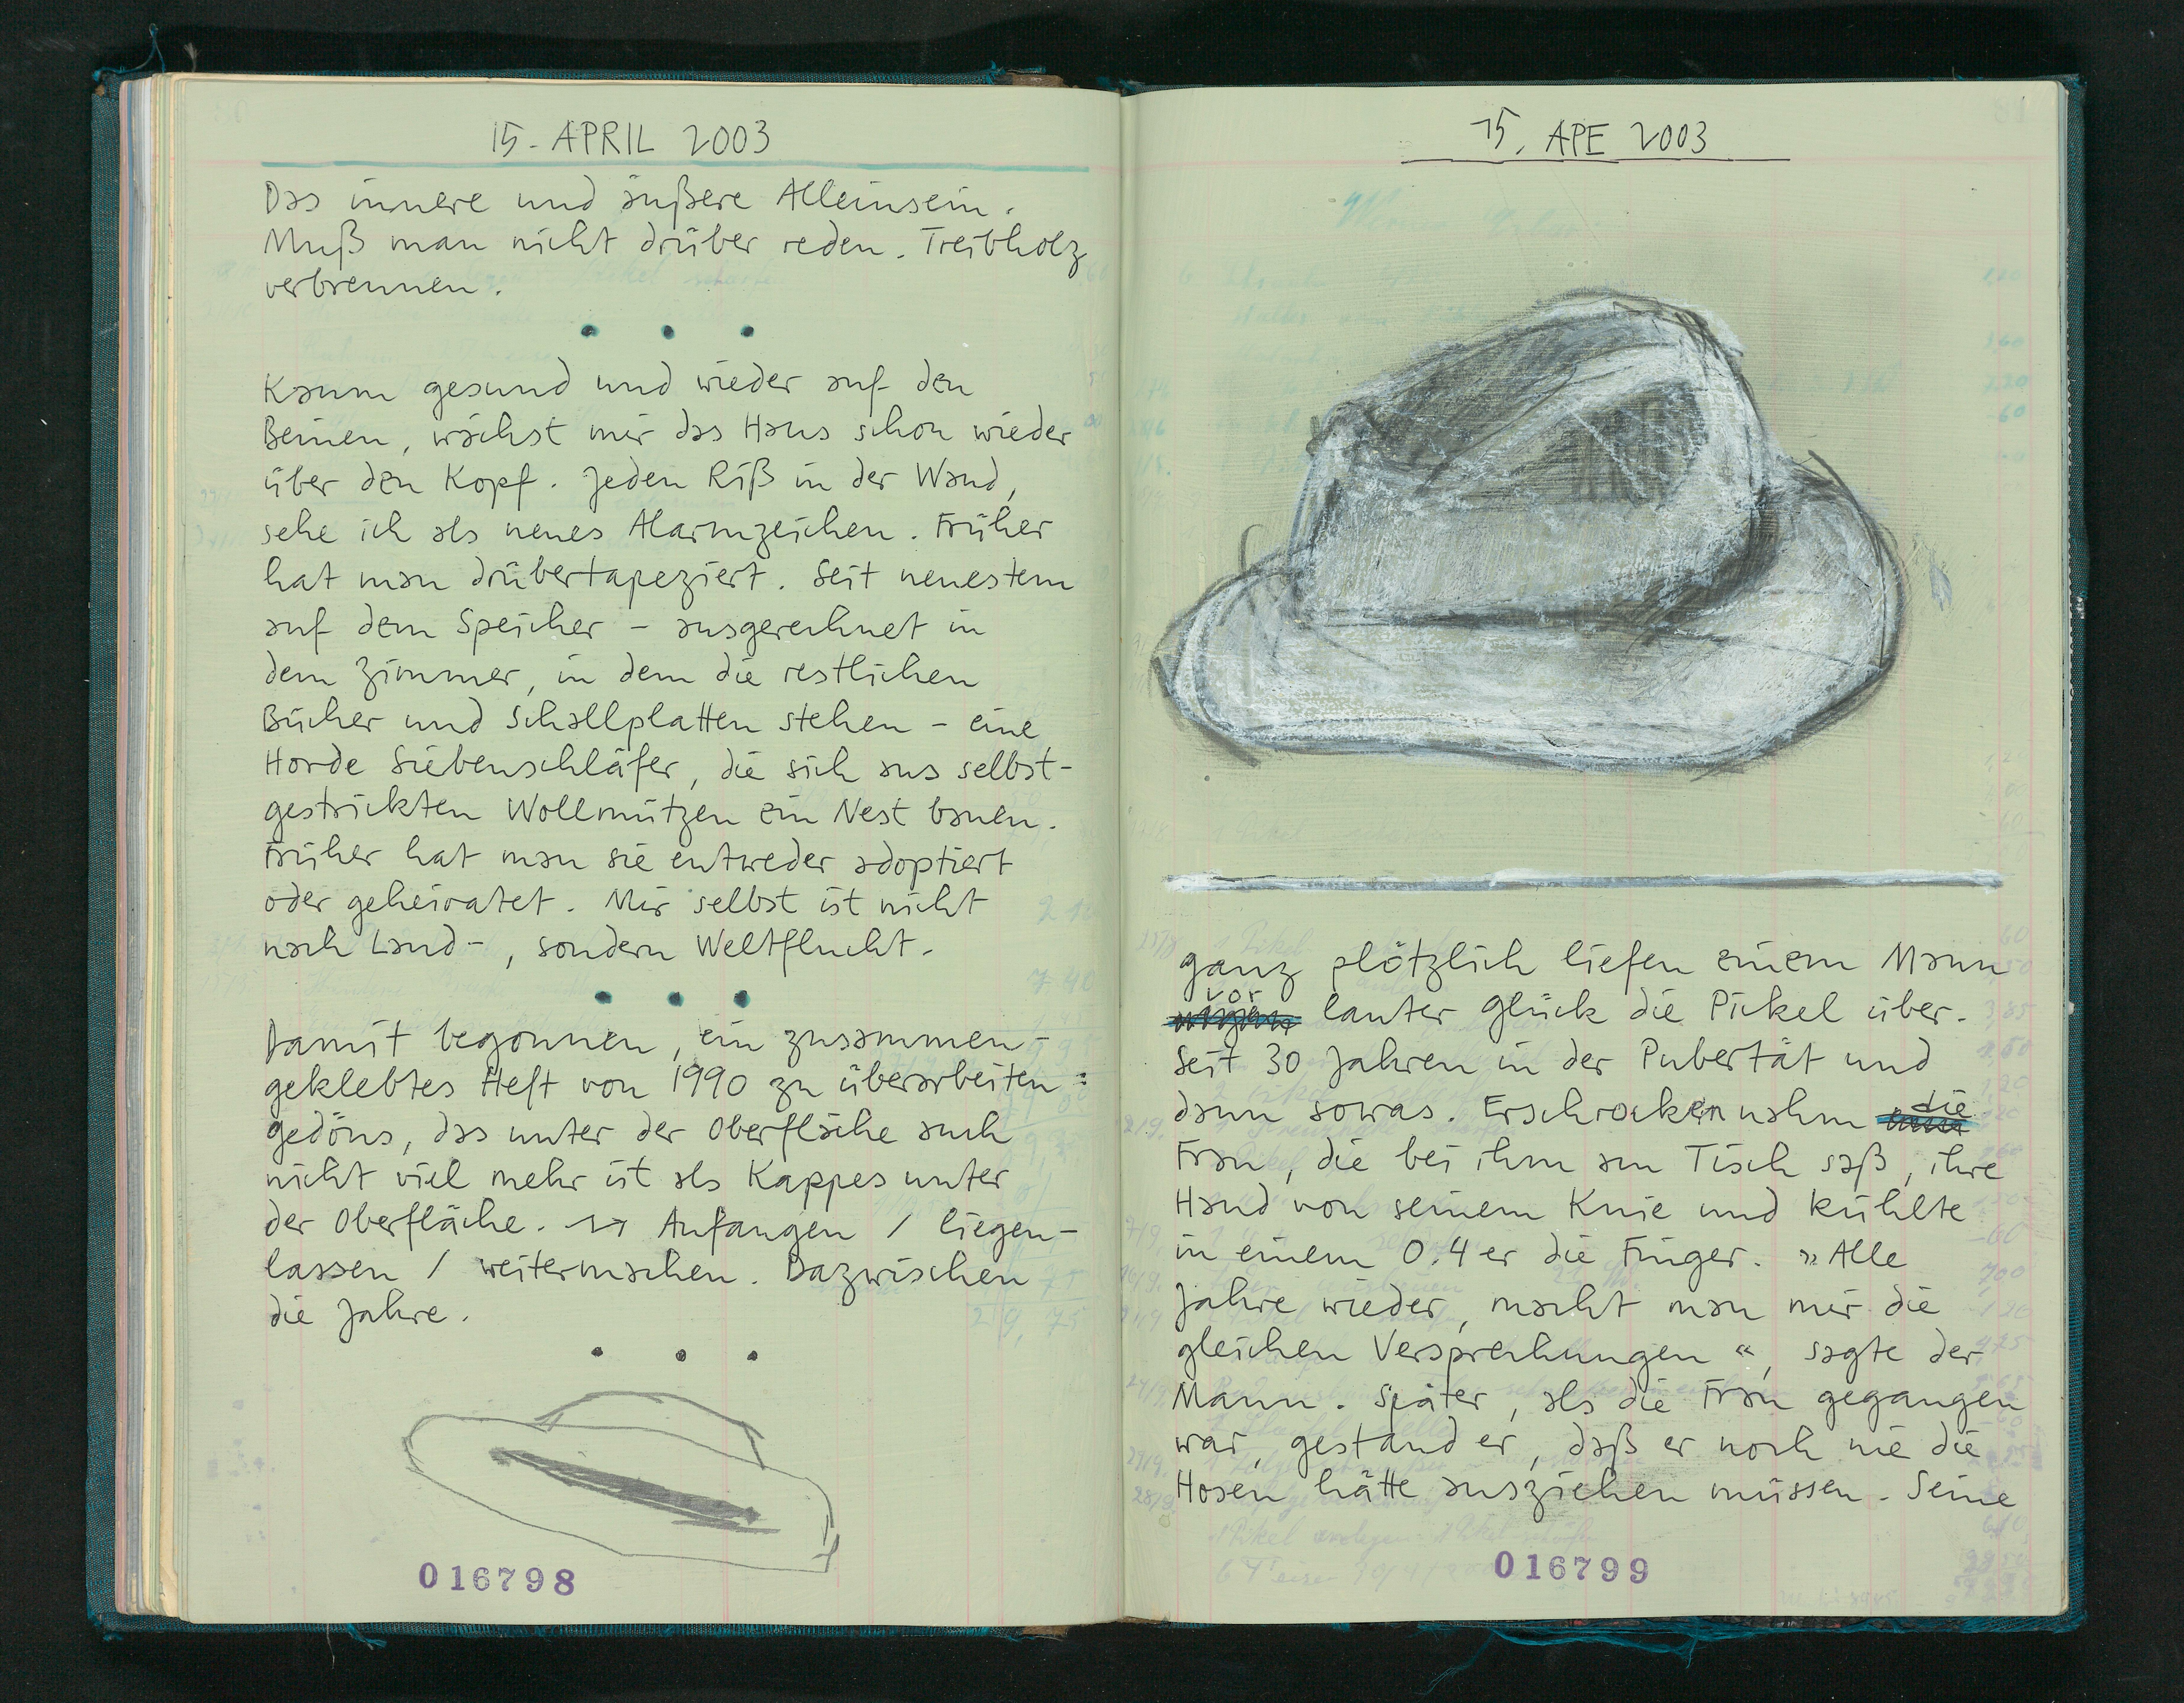 15. APRIL 2003
Das innere und äußere Alleinsein.
Muß man nicht drüber reden. Treibholz
verbrennen.
Kaum gesund und wieder auf den
Beinen, wächst mir das Haus schon wieder
über den Kopf. Jeden Riß in der Wand,
sehe ich als neues Alarmzeichen. Früher
hat man drübertapeziert. Seit neuestem
auf dem Speicher – ausgerechnet in
dem Zimmer, in dem die restlichen
Bücher und Schallplatten stehen – eine
Horde Siebenschläfer, die sich aus selbst-
gestrickten Wollmützen ein Nest bauen.
Früher hat man sie entweder adoptiert
oder geheiratet. Mir selbst ist nicht
nach Land-, sondern Weltflucht.
Damit begonnen, ein zusammen-
geklebtes Heft von 1990 zu überarbeiten:
gedöns, das unter der Oberfläche auch
nicht viel mehr ist als Kappes unter
der Oberfläche. Anfangen / liegen-
lassen / weitermachen. Dazwischen
die Jahre.
016798
15. APE 2003
ganz plötzlich liefen einem Mann
vor lauter Glück die Pickel über.
Seit 30 Jahren in der Pubertät und
dann sowas. Erschrocken nahm die
Frau, die bei ihm am Tisch saß, ihre
Hand von seinem Knie und kühlte
in einem 0.4er die Finger. »Alle
Jahre wieder, macht man mir die
gleichen Versprechungen«, sagte der
Mann. Später, als die Frau gegangen
war, gestand er, daß er noch nie die
Hosen hätte ausziehen müssen. Seine
016799